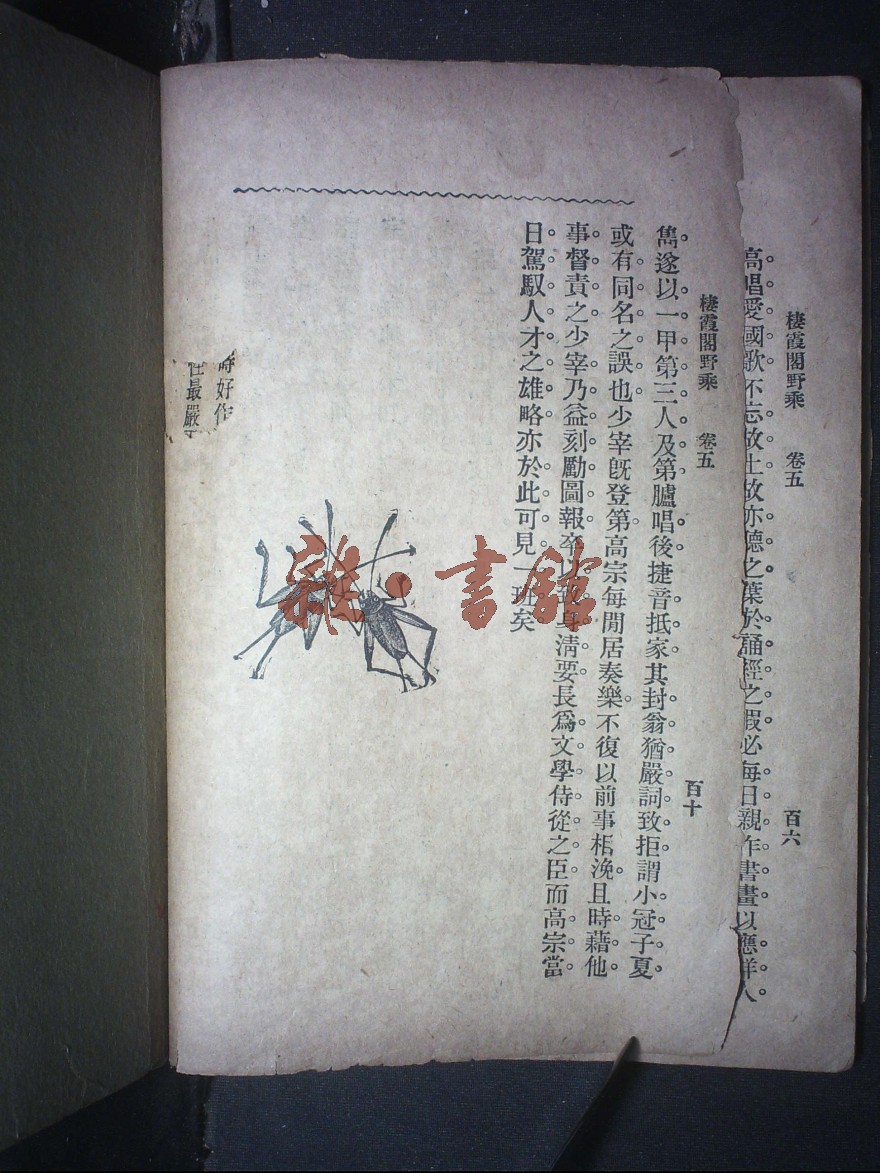 棲霞閣野乘　卷五　百六
高唱愛國歌不忘故土故亦德之葉於誦經之暇必每日親作書畫以應洋人
棲霞閣野乘　卷五　百十
雋遂以一甲第三人及第臚唱後捷音抵家其封翁猶嚴詞致拒謂小冠子夏
或有同名之誤也少宰旣登第高宗每閒居奏樂不復以前事相浼且時藉他
事督責之少宰乃益刻勵圖報卒以身淸要長爲文學侍從之臣而高宗當
日駕馭人才之雄略亦於此可見一班矣
時好作
性最嚴
雜·書館